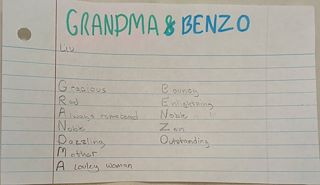 GRANDMA & BENZO
Liv
Gracious
Rad
Always
Noble
Dazzling
Mother
A lovley woman
Bouncy
Enlightning
Noble
Zen
Outstanding